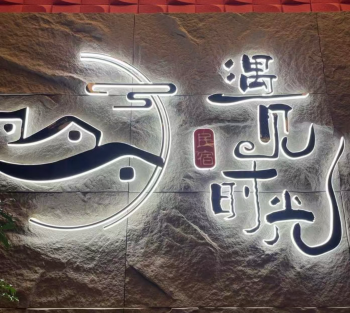 遇见时光
民宿